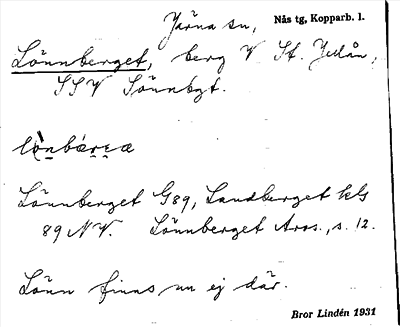 Järna sn, Nås tg, Kopparb. l.
Lönnberget, berg V St. Jullån,
SSV Lönnbgt.
lònbǽrɛæ
Lönnberget G89, Landberget kls
89 NV. Lönnberget Aros., s. 12.
Lönn finns nu ej där.
Bror Lindén 1931